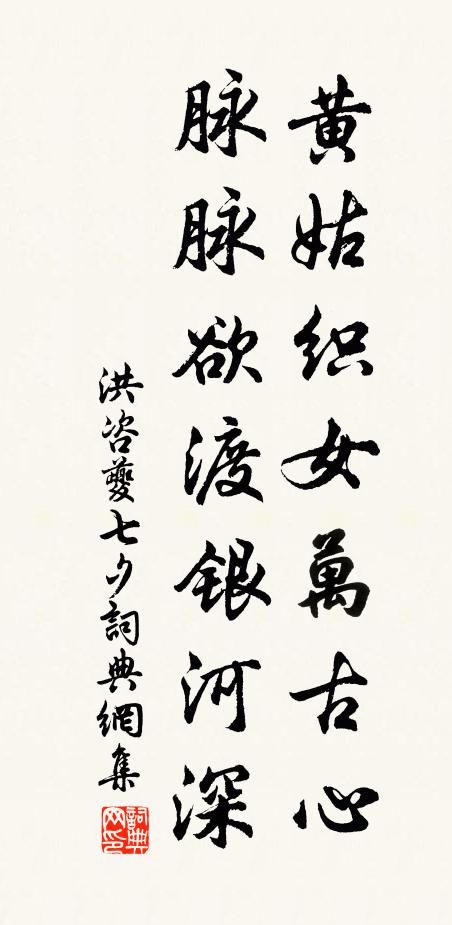 黄姑织女萬古心
脉脉欲渡银河深
洪咨夔七夕詞典網集
詞典网印